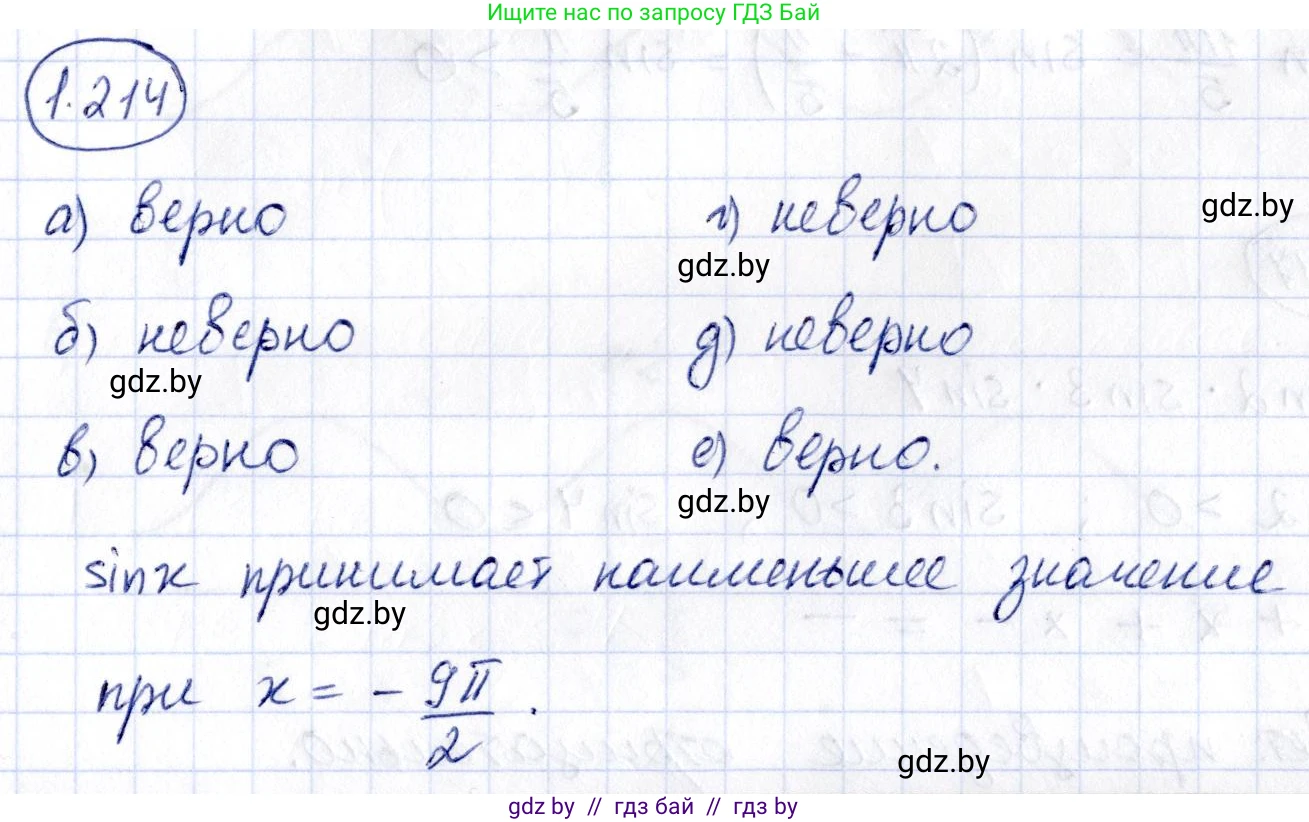 Ищите нас по запросу ГДЗ Бай
1.214
а) верно
г) неверно
gdz.by
gdz.by
б) неверно
д) неверно
gdz.by
в) верно
е) верно.
gdz.by
sinx принимает наименьшее значение
gdz.by
при x = - 9π/2 .
gdz.by
gdz.by // гдз бай // гдз by